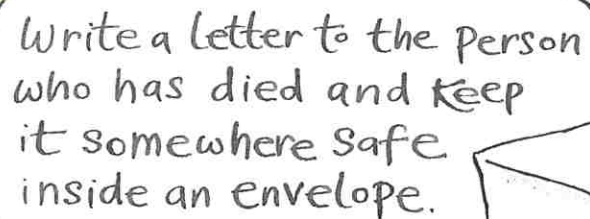 Write a letter to the person
who has died and keep
it somewhere safe
inside an envelope.